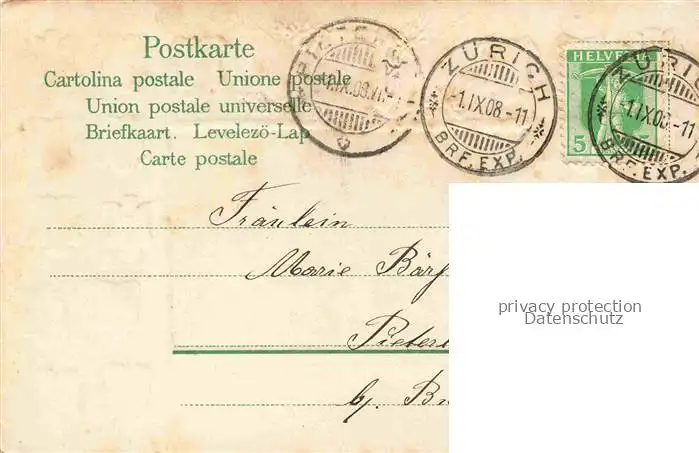 Postkarte
Cartolina postale Unione postale
Union postale universelle
Briefkaart. Levelezö-Lap
Carte postale
ZÜRICH
-1.IX.08.-11
BRF.EXP.
HELVETIA
5
ZÜRICH
-1.IX.08.-11
BRF.EXP.
Fräulein
Marie
privacy protection
Datenschutz